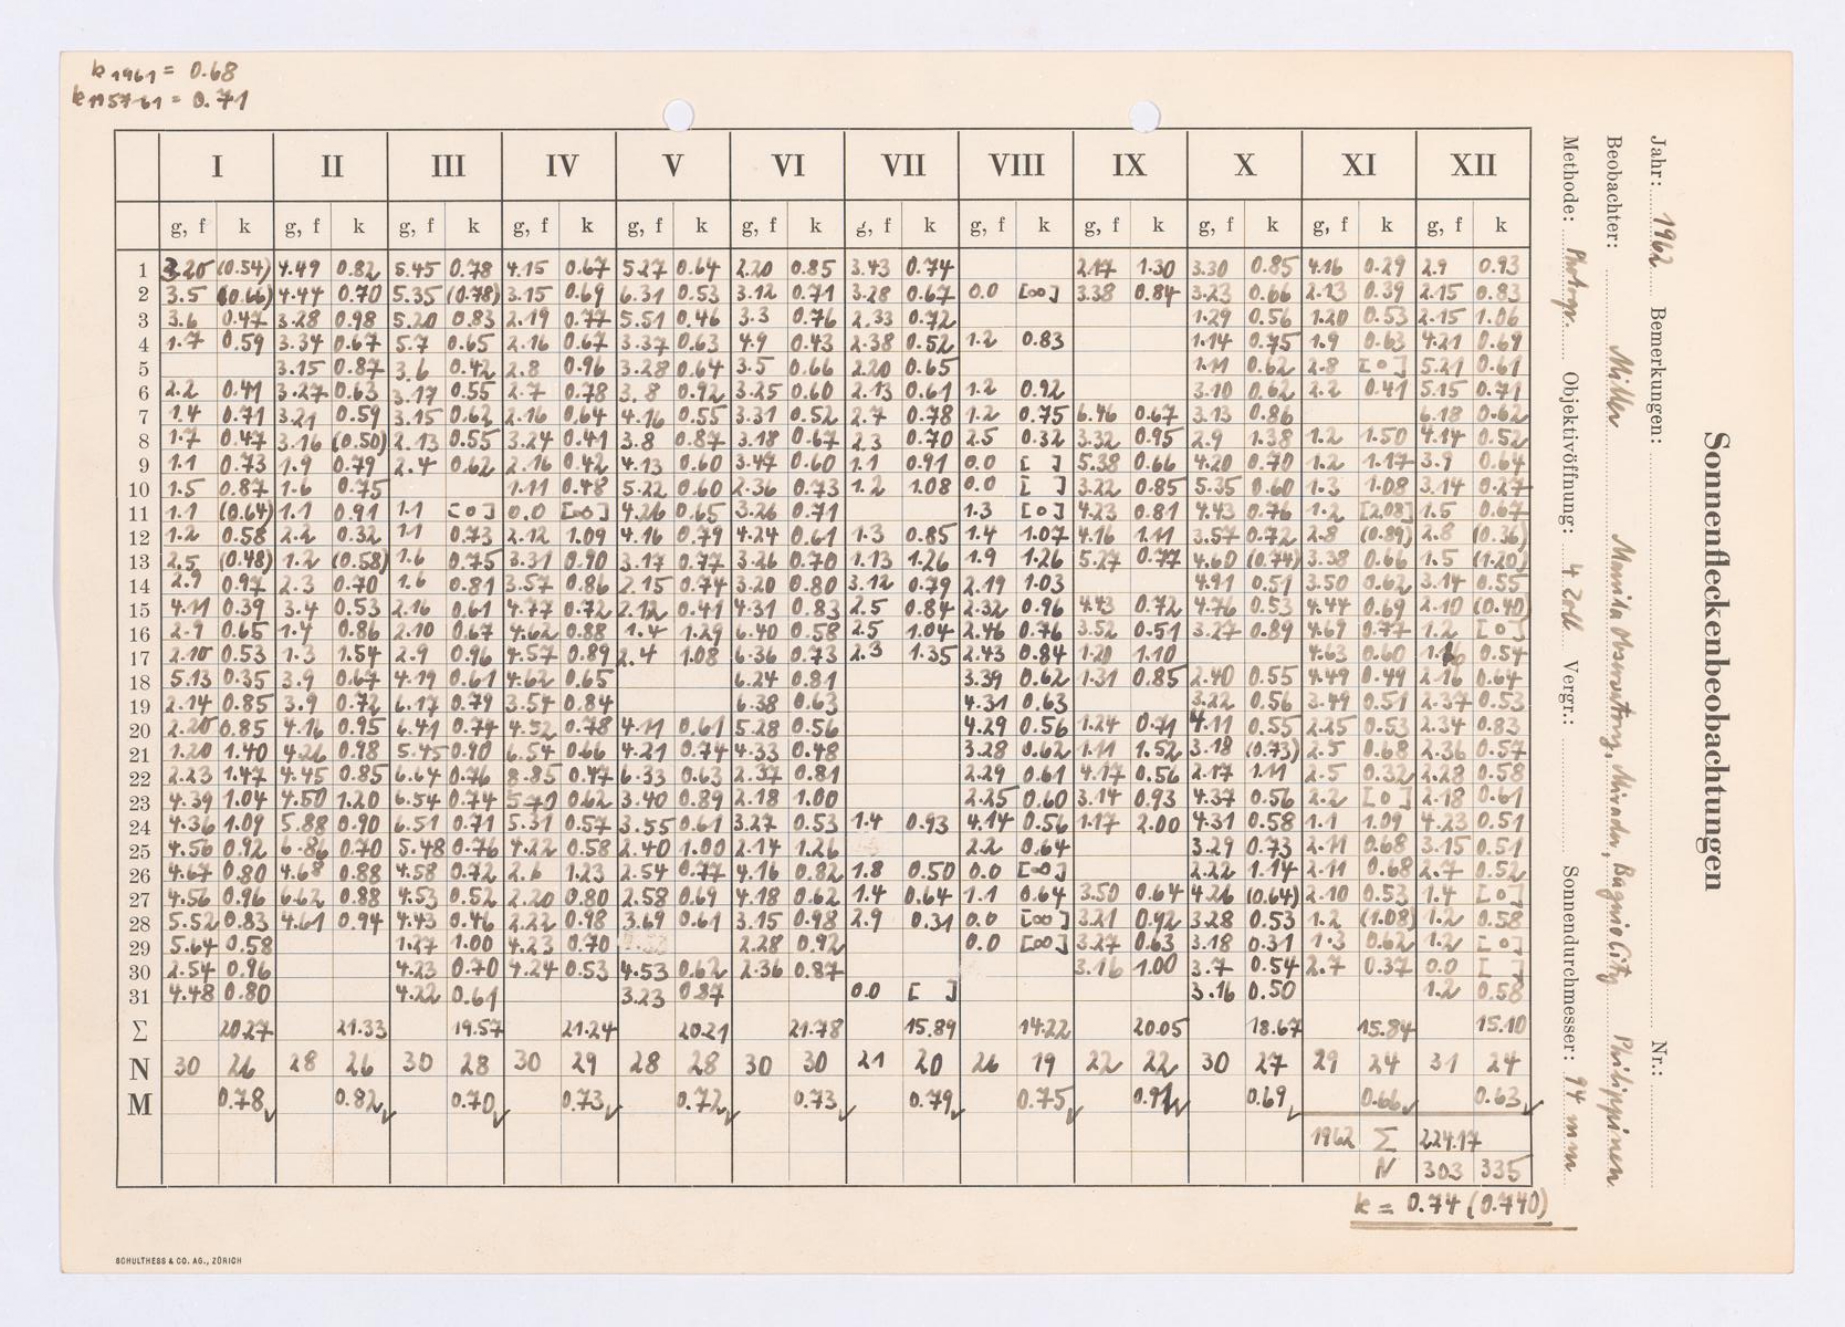 k 1961 = 0.68
k 1957-61 = 0.71
Sonnenfleckenbeobachtungen
Jahr: 1962 Bemerkungen: Nr.:
Beobachter: Miller Manila Observatory, Mirador, Baguio City Philippinen
Methode: Photogr. Objektivöffnung: 4 Zoll Vergr.: Sonnendurchmesser: 94 mm
I II III IV V VI VII VIII IX X XI XII
g, f k g, f k g, f k g, f k g, f k g, f k g, f k g, f k g, f k g, f k g, f k g, f k
1 3.20 (0.54) 4.49 0.82 5.45 0.78 4.15 0.67 5.27 0.64 2.20 0.85 3.43 0.74 2.17 1.30 3.30 0.85 4.16 0.29 2.9 0.93
2 3.5 (0.66) 4.44 0.70 5.35 (0.78) 3.15 0.69 6.31 0.53 3.12 0.71 3.28 0.67 0.0 [∞] 3.38 0.84 3.23 0.66 2.13 0.39 2.15 0.83
3 3.6 0.47 3.28 0.98 5.20 0.83 2.19 0.77 5.51 0.46 3.3 0.76 2.33 0.72 1.29 0.56 1.20 0.53 2.15 1.06
4 1.7 0.59 3.34 0.67 5.7 0.65 2.16 0.67 3.37 0.63 4.9 0.43 2.38 0.52 1.2 0.83 1.14 0.75 1.9 0.63 4.21 0.69
5 3.15 0.87 3.6 0.42 2.8 0.96 3.28 0.64 3.5 0.66 2.20 0.65 1.11 0.62 2.8 [0] 5.21 0.61
6 2.2 0.41 3.27 0.63 3.17 0.55 2.7 0.78 3.8 0.92 3.25 0.60 2.13 0.61 1.2 0.92 3.10 0.62 2.2 0.41 5.15 0.71
7 1.4 0.71 3.21 0.59 3.15 0.62 2.16 0.64 4.16 0.55 3.31 0.52 2.7 0.78 1.2 0.75 6.46 0.67 3.13 0.86 6.18 0.62
8 1.7 0.47 3.16 (0.50) 2.13 0.55 3.24 0.41 3.8 0.87 3.18 0.67 2.3 0.70 2.5 0.32 3.32 0.95 2.9 1.38 1.2 1.50 4.14 0.52
9 1.1 0.73 1.9 0.79 2.4 0.62 2.16 0.42 4.13 0.60 3.47 0.60 1.1 0.91 0.0 [ ] 5.38 0.66 4.20 0.70 1.2 1.17 3.9 0.64
10 1.5 0.87 1.6 0.75 1.11 0.48 5.22 0.60 2.36 0.73 1.2 1.08 0.0 [ ] 3.22 0.85 5.35 0.60 1.3 1.08 3.14 0.27
11 1.1 (0.64) 1.1 0.91 1.1 [0] 0.0 [∞] 4.26 0.65 3.26 0.71 1.3 [0] 4.23 0.81 4.43 0.76 1.2 [2.08] 1.5 0.67
12 1.2 0.58 2.2 0.32 1.1 0.73 2.12 1.09 4.16 0.79 4.24 0.61 1.3 0.85 1.4 1.07 4.16 1.11 3.57 0.72 2.8 (0.89) 2.8 (0.36)
13 2.5 (0.48) 1.2 (0.58) 1.6 0.75 3.31 0.90 3.17 0.77 3.26 0.70 1.13 1.26 1.9 1.26 5.27 0.77 4.60 (0.74) 3.38 0.66 1.5 (1.20)
14 2.9 0.97 2.3 0.70 1.6 0.81 3.57 0.86 2.15 0.74 3.20 0.80 3.12 0.79 2.19 1.03 4.91 0.51 3.50 0.62 3.14 0.55
15 4.11 0.39 3.4 0.53 2.16 0.61 4.77 0.72 2.12 0.41 4.31 0.83 2.5 0.84 2.32 0.96 4.43 0.72 4.76 0.53 4.44 0.69 2.10 (0.40)
16 2.9 0.65 1.4 0.86 2.10 0.67 4.62 0.88 1.4 1.29 6.40 0.58 2.5 1.04 2.46 0.76 3.52 0.51 3.27 0.89 4.69 0.77 1.2 [0]
17 2.10 0.53 1.3 1.54 2.9 0.96 4.57 0.89 2.4 1.08 6.36 0.73 2.3 1.35 2.43 0.84 1.20 1.10 4.63 0.60 1.16 0.54
18 5.13 0.35 3.9 0.67 4.19 0.61 4.62 0.65 6.24 0.81 3.39 0.62 1.31 0.85 2.40 0.55 4.49 0.49 2.16 0.64
19 2.14 0.85 3.9 0.72 6.17 0.79 3.54 0.84 6.38 0.63 4.31 0.63 3.22 0.56 3.49 0.51 2.37 0.53
20 2.20 0.85 4.16 0.95 6.41 0.74 4.52 0.78 4.11 0.61 5.28 0.56 4.29 0.56 1.24 0.71 4.11 0.55 2.25 0.53 2.34 0.83
21 1.20 1.40 4.26 0.98 5.45 0.90 6.54 0.66 4.21 0.74 4.33 0.48 3.28 0.62 1.11 1.52 3.18 (0.73) 2.5 0.68 2.36 0.57
22 2.23 1.47 4.45 0.85 6.64 0.76 8.85 0.47 6.33 0.63 2.37 0.81 2.29 0.61 4.17 0.56 2.17 1.11 2.5 0.32 2.28 0.58
23 4.39 1.04 4.50 1.20 6.54 0.74 5.70 0.62 3.40 0.89 2.18 1.00 2.25 0.60 3.14 0.93 4.37 0.56 2.2 [0] 2.18 0.61
24 4.36 1.09 5.88 0.90 6.51 0.71 5.31 0.57 3.55 0.61 3.27 0.53 1.4 0.93 4.14 0.56 1.17 2.00 4.31 0.58 1.1 1.09 4.23 0.51
25 4.56 0.92 6.86 0.70 5.48 0.76 4.22 0.58 2.40 1.00 2.14 1.26 2.2 0.64 3.29 0.73 2.11 0.68 3.15 0.51
26 4.67 0.80 4.68 0.88 4.58 0.72 2.6 1.23 2.54 0.77 4.16 0.82 1.8 0.50 0.0 [∞] 2.22 1.14 2.11 0.68 2.7 0.52
27 4.56 0.96 6.62 0.88 4.53 0.52 2.20 0.80 2.58 0.69 4.18 0.62 1.4 0.64 1.1 0.64 3.50 0.64 4.26 (0.64) 2.10 0.53 1.4 [0]
28 5.52 0.83 4.61 0.94 4.43 0.46 2.22 0.98 3.69 0.61 3.15 0.98 2.9 0.31 0.0 [∞] 3.21 0.92 3.28 0.53 1.2 (1.08) 1.2 0.58
29 5.64 0.58 1.27 1.00 4.23 0.70 2.28 0.92 0.0 [∞] 3.27 0.63 3.18 0.31 1.3 0.62 1.2 [0]
30 2.54 0.96 4.23 0.70 4.24 0.53 4.53 0.62 2.36 0.87 3.16 1.00 3.7 0.54 2.7 0.37 0.0 [ ]
31 4.48 0.80 4.22 0.61 3.23 0.87 0.0 [ ] 3.16 0.50 1.2 0.58
Σ 20.27 21.33 19.57 21.24 20.21 21.78 15.89 14.22 20.05 18.67 15.84 15.10
N 30 26 28 26 30 28 30 29 28 28 30 30 21 20 26 19 22 22 30 27 29 24 31 24
M 0.78 0.82 0.70 0.73 0.72 0.73 0.79 0.75 0.91 0.69 0.66 0.63
1962 Σ 224.17
N 303 335
k = 0.74 (0.740)
SCHULTHESS & CO. AG., ZÜRICH